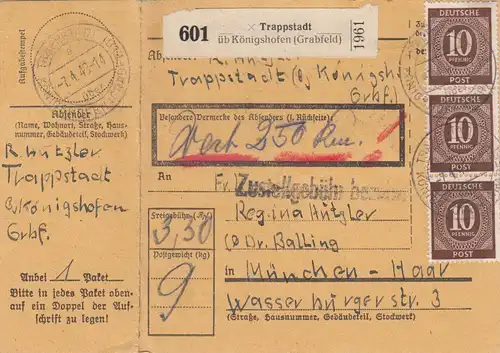 601
Trappstadt
üb Königshofen (Grabfeld)
1961
Aufgabestempel
Absender
(Name, Wohnort, Straße, Haus-
nummer, Gebäudeteil, Stockwerk)
R. Hützler
Trappstadt
b/Königshofen
Grbf.
Anbei 1 Paket
Bitte in jedes Paket oben-
auf ein Doppel der Auf-
schrift zu legen!
Absender
R. Hützler
Trappstadt b/ Königsh
Grbf.
Besondere Vermerke des Absenders (s. Rückseite)
Wert 250 Rm.
An
Fr.
Zustellgebühr
Regina Hützler
b Dr. Balling
in München - Haar
Wasserburgerstr. 3
(Straße, Hausnummer, Gebäudeteil, Stockwerk)
Freigebühr
3,30
Postgewicht (kg)
9
DEUTSCHE
10
PFENNIG
POST
DEUTSCHE
10
PFENNIG
POST
DEUTSCHE
10
PFENNIG
POST